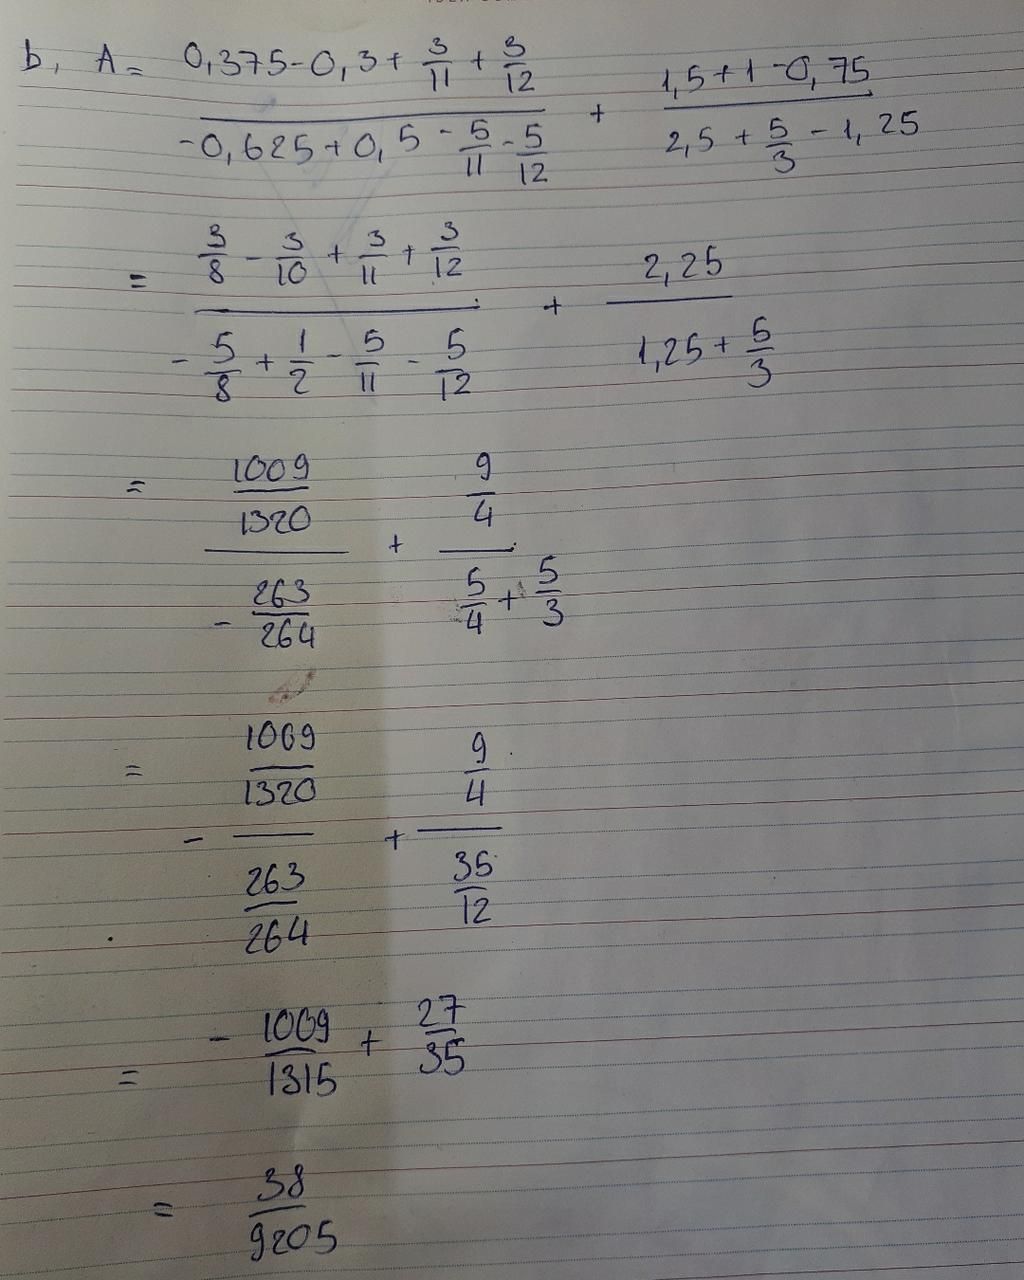 b, A = (0,375 - 0,3 + 3/11 + 3/12)/(-0,625 + 0,5 - 5/11 - 5/12) + (1,5 + 1 - 0,75)/(2,5 + 5/3 - 1,25)
= (3/8 - 3/10 + 3/11 + 3/12)/(-5/8 + 1/2 - 5/11 - 5/12) + 2,25/(1,25 + 5/3)
= (1009/1320)/(-263/264) + (9/4)/(5/4 + 5/3)
= -(1009/1320)/(263/264) + (9/4)/(35/12)
= -1009/1315 + 27/35
= 38/9205